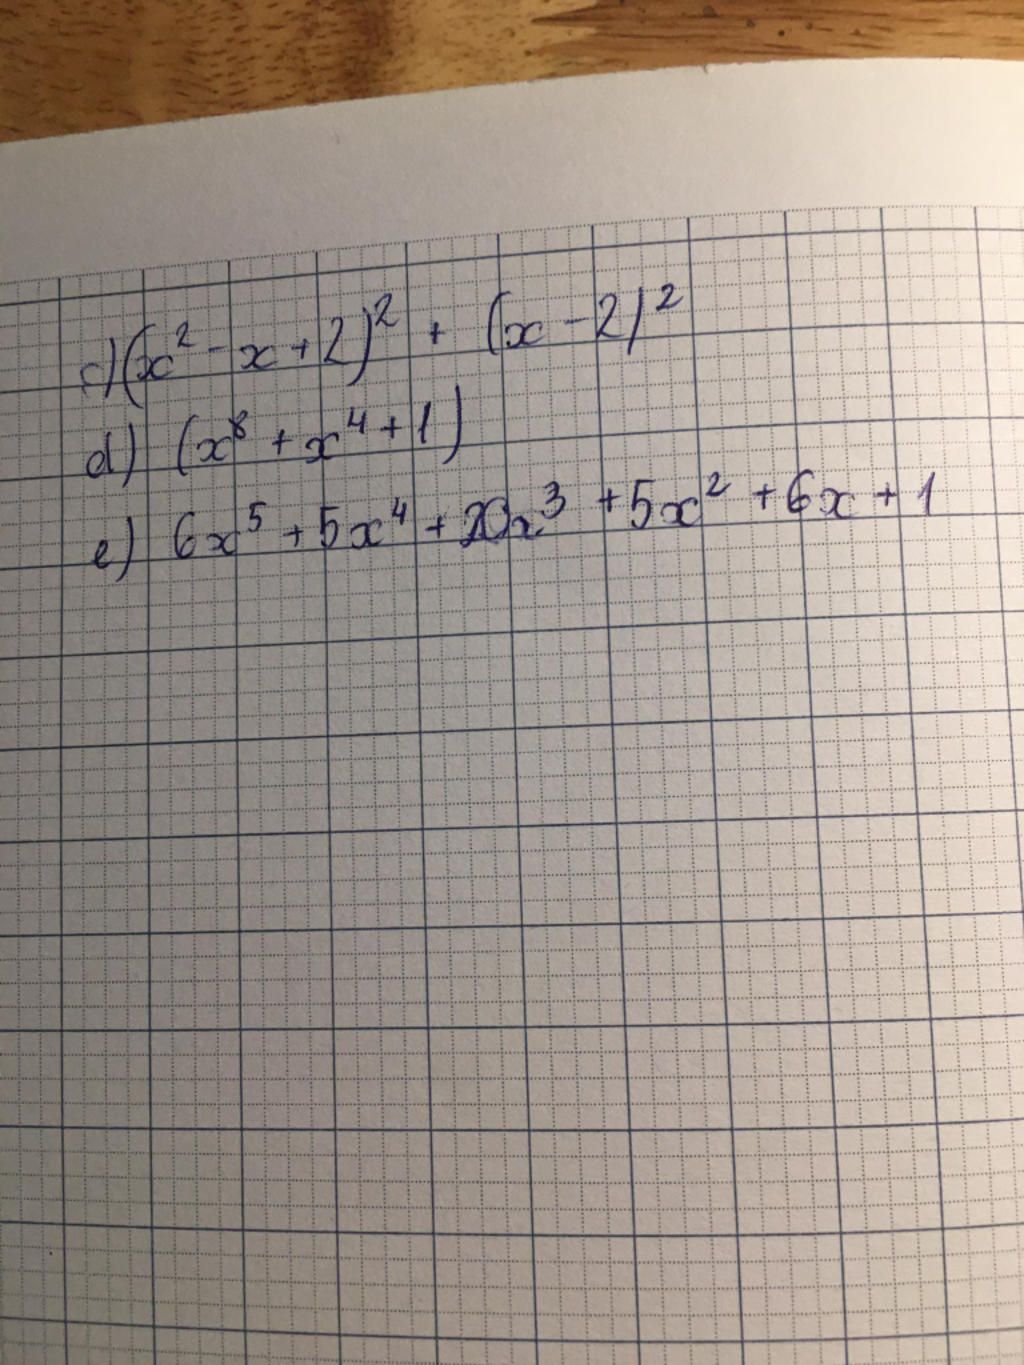 c) (x² - x + 2)² + (x - 2)²
d) (x⁸ + x⁴ + 1)
e) 6x⁵ + 5x⁴ + 20x³ + 5x² + 6x + 1